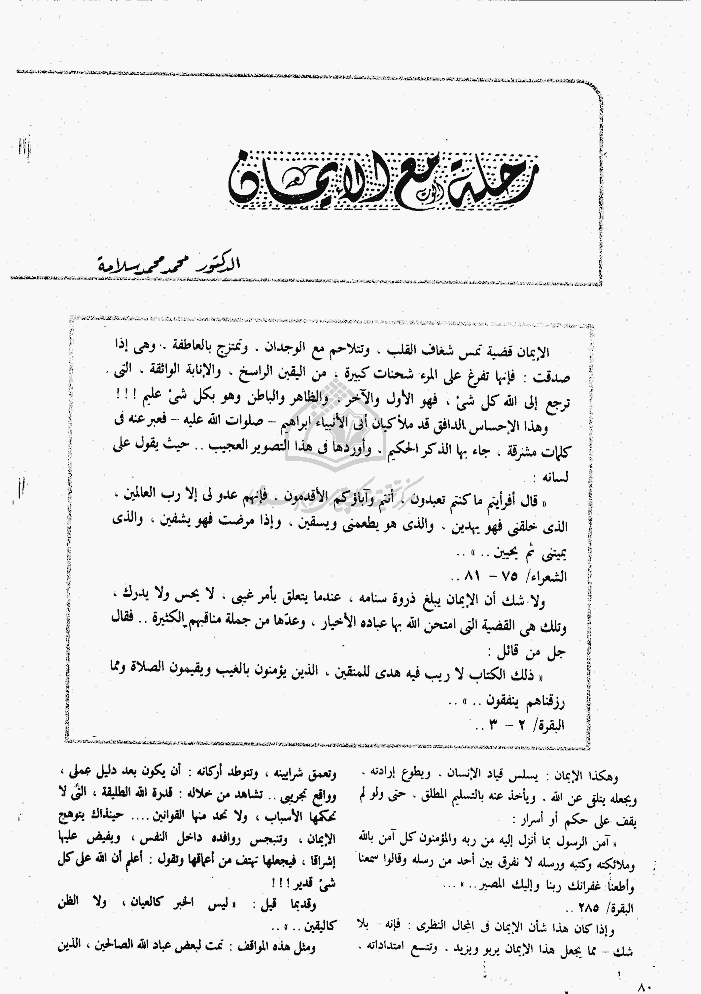 رحلة مع الإيمان
الدكتور محمد محمد سلامة
الإيمان قضية تمس شغاف القلب ، وتتلاحم مع الوجدان . وتمتزج بالعاطفة . وهى إذا
صدقت : فإنها تفرغ على المرء شحنات كبيرة ، من اليقين الراسخ ، والإنابة الواثقة ، التى .
ترجع إلى الله كل شئ ، فهو الأول والآخر . والظاهر والباطن وهو بكل شئ عليم ! ! !
وهذا الإحساس الدافق قد ملأ كيان أبى الأنبياء ابراهيم – صلوات الله عليه – فعبر عنه فى
كلمات مشرقة ، جاء بها الذكر الحكيم . وأوردها فى هذا التصوير العجيب .. حيث يقول على
لسانه :
« قال أفرأيتم ما كنتم تعبدون ، أنتم وآباؤكم الأقدمون . فإنهم عدو لى إلا رب العالمين ،
الذى خلقنى فهو يهدين ، والذى هو يطعمنى ويسقين ، وإذا مرضت فهو يشفين ، والذى
يميتنى ثم يحيين .. » ..
الشعراء/ ٧٥ – ٨١ ..
ولا شك أن الإيمان يبلغ ذروة سنامه ، عندما يتعلق بأمر غيبى ، لا يحس ولا يدرك ،
وتلك هى القضية التى امتحن الله بها عباده الأخيار ، وعدّها من جملة مناقبهم الكثيرة .. فقال
جل من قائل :
« ذلك الكتاب لا ريب فيه هدى للمتقين ، الذين يؤمنون بالغيب ويقيمون الصلاة ومما
رزقناهم ينفقون .. » ..
البقرة/ ٢ – ٣ ..
وهكذا الإيمان : يسلس قياد الإنسان . ويطوع إرادته .
ويجعله يتلقى عن الله . ويأخذ عنه بالتسليم المطلق . حتى ولو لم
يقف على حكم أو أسرار :
« آمن الرسول بما أنزل إليه من ربه والمؤمنون كل آمن بالله
وملائكته وكتبه ورسله لا نفرق بين أحد من رسله وقالوا سمعنا
وأطعنا غفرانك ربنا وإليك المصير .. » ...
البقرة/ ٢٨٥ ..
وإذا كان هذا شأن الإيمان فى المجال النظرى : فإنه بلا
شك – مما يجعل هذا الإيمان يربو ويزيد . وتتسع امتداداته .
وتعمق شرايينه ، وتتوطد أركانه : أن يكون بعد دليل عملى ،
وواقع تجريبى .. تشاهد من خلاله : قدرة الله الطليقة ، التى لا
تحكمها الأسباب ، ولا تحد منها القوانين .... حينذاك يتوهج
الإيمان ، وتنبجس روافده داخل النفس ، ويفيض عليها
إشراقا ، فيجعلها تهتف من أعماقها وتقول : أعلم أن الله على كل
شئ قدير ! ! !
وقديما قيل : « ليس الخبر كالعيان ، ولا الظن
كاليقين .. » ..
ومثل هذه المواقف : تمت لبعض عباد الله الصالحين ، الذين
٨٠